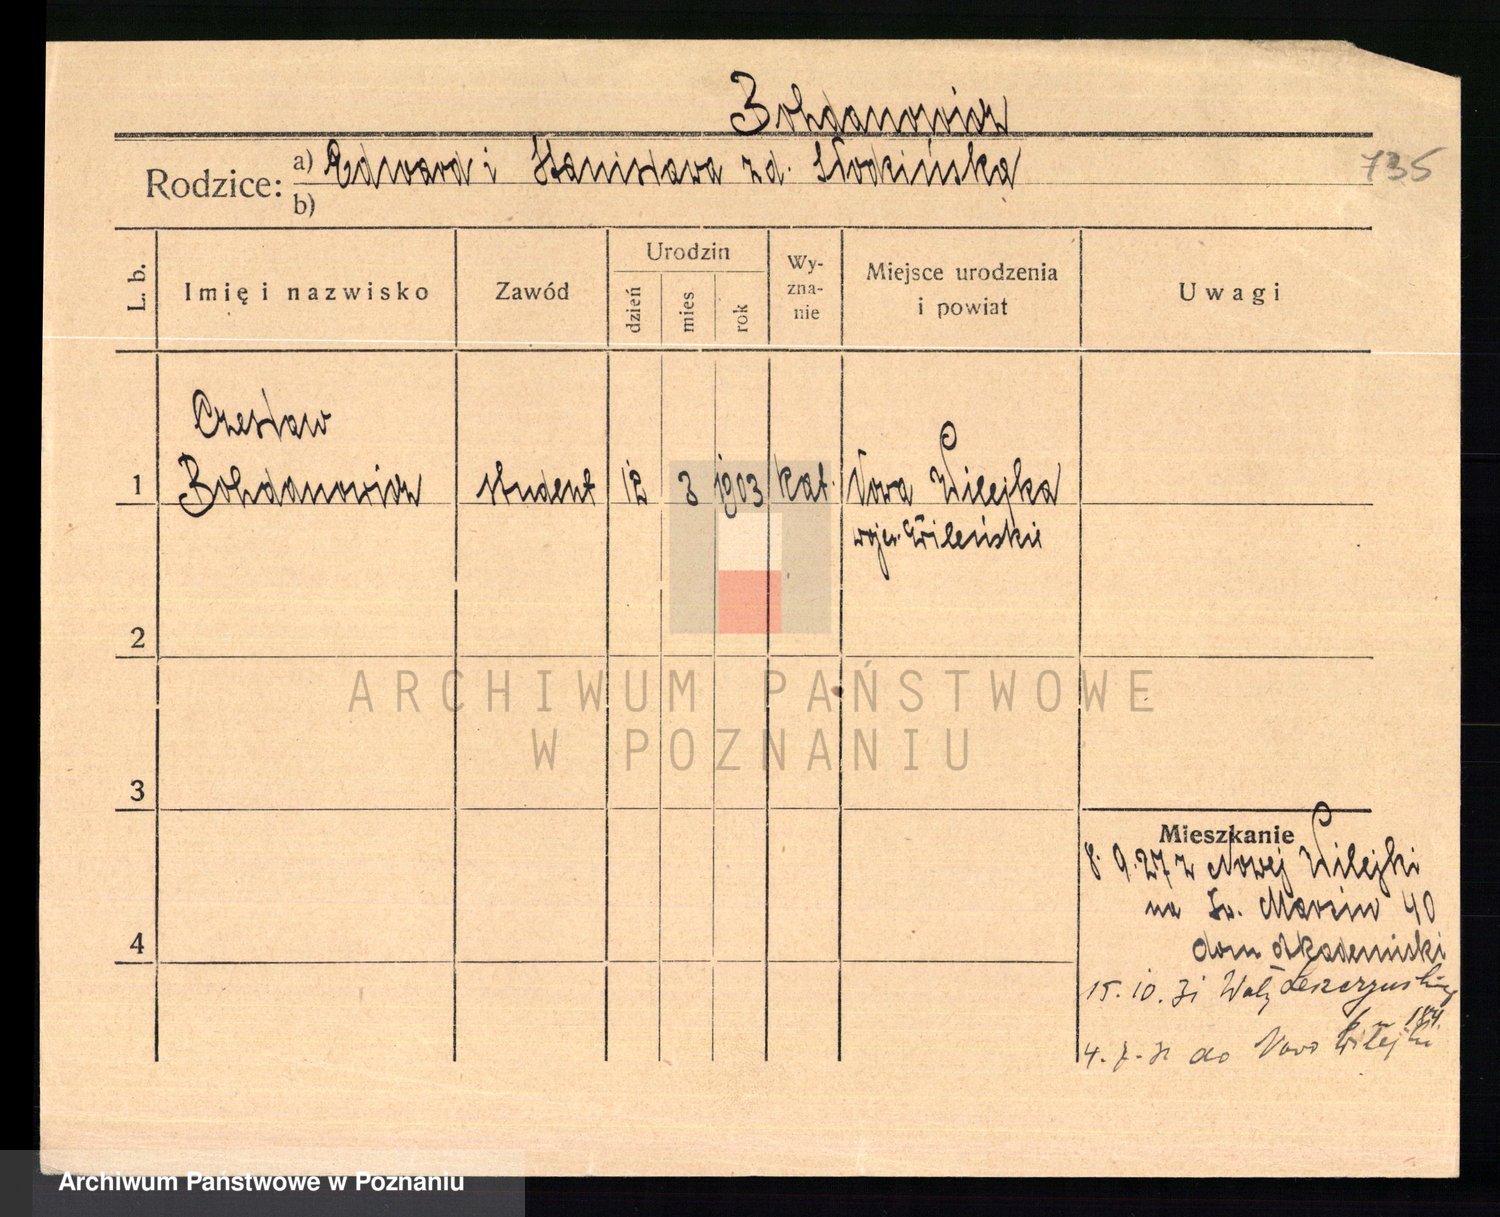 Bohdanowicz
Rodzice: a) Edward i Stanisława zd. Słodzińska
735
b)
L. b.
Imię i nazwisko
Zawód
Urodzin
dzień
mies
rok
Wy-
zna-
nie
Miejsce urodzenia
i powiat
Uwagi
Czesław
1 Bohdanowicz student 12 3 1903 kat. Nowa Wilejka
wojew. Wileńskie
2
ARCHIWUM PAŃSTWOWE
W POZNANIU
3
Mieszkanie
8. 9. 27 z Nowej Wilejki
na Św. Marcin 40
dom akademicki
4
15. 10. 31 Wały Leszczyńskiego
4. 7. do Nowo Wilejki
Archiwum Państwowe w Poznaniu